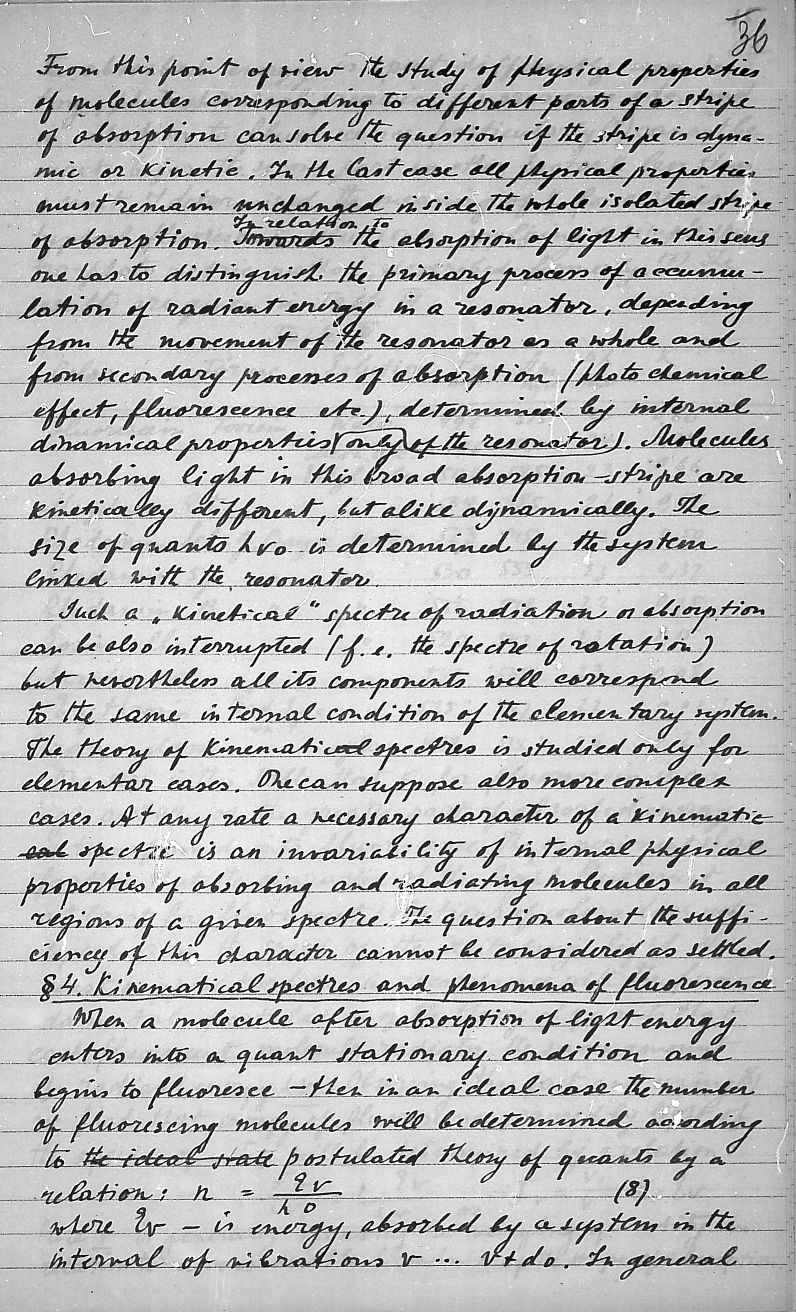 36
From this point of view the study of physical properties
of molecules corresponding to different parts of a stripe
of absorption can solve the question if the stripe is dyna-
mic or kinetic. In the last case all physical properties
must remain unchanged inside the whole isolated stripe
In relation to
of absorption. Towards the absorption of light in this sens
one has to distinguish the primary process of accumu-
lation of radiant energy in a resonator, depending
from the movement of the resonator as a whole and
from secondary processes of absorption (photochemical
effect, fluorescence etc.), determined by internal
dinamical properties (only of the resonator). Molecules
absorbing light in this broad absorption-stripe are
kinetically different, but alike dijnamically. The
size of quants hνo is determined by the system
linked with the resonator
Such a „kinetical" spectre of radiation or absorption
can be also interrupted (f.e. the spectre of ratation)
but nevertheless all its components will correspond
to the same internal condition of the elementary system.
The theory of kinematical spectres is studied only for
elementar cases. One can suppose also more complex
cases. At any rate a necessary character of a kinematic
cal spectre is an invariability of internal physical
properties of absorbing and radiating molecules in all
regions of a given spectre. The question about the suffi-
ciency of this character cannot be considered as settled.
§4. Kinematical spectres and phenomena of fluorescence
When a molecule after absorption of light energy
enters into a quant stationary condition and
begins to fluoresce – then in an ideal case the number
of fluorescing molecules will be determined acording
to the ideal state postulated theory of quants by a
relation: n = (8)
where – is energy, absorbed by a system in the
interval of vibrations ν ... ν+dο. In general